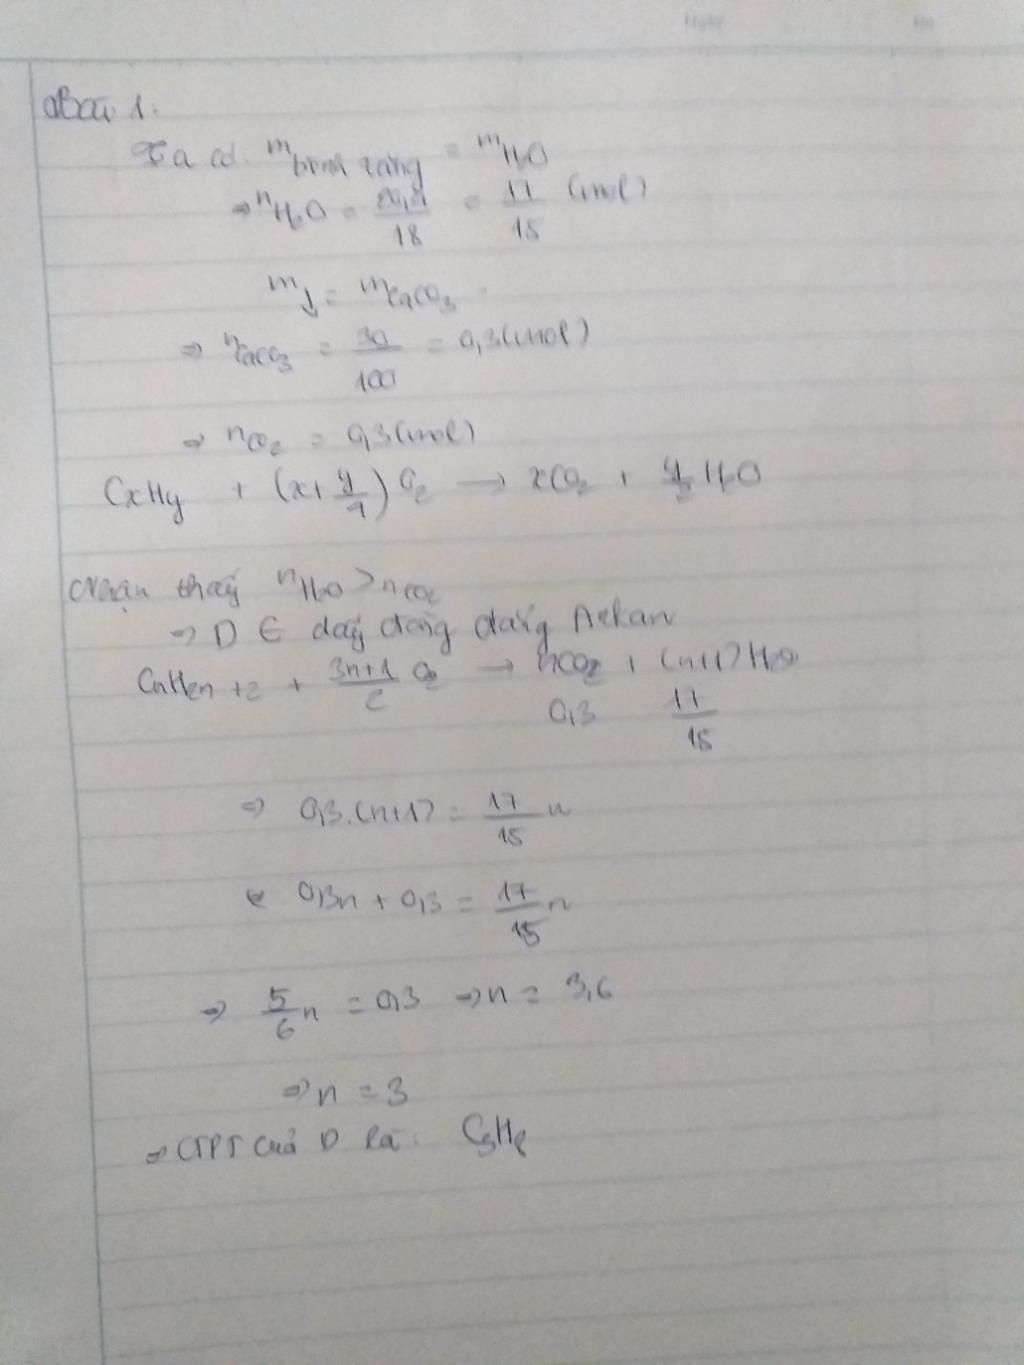 Bài 1:
Ta có: m bình tăng = mH2O
=> nH2O = 20,4/18 = 17/15 (mol)
m↓ = mCaCO3
=> nCaCO3 = 30/100 = 0,3 (mol)
=> nCO2 = 0,3 (mol)
CxHy + (x + y/4) O2 → xCO2 + y/2 H2O
Nhận thấy nH2O > nCO2
=> D ∈ dãy đồng đẳng Ankan
CnH2n+2 + 3n+1/2 O2 → nCO2 + (n+1) H2O
0,3 17/15
=> 0,3.(n+1) = 17/15 n
0,3n + 0,3 = 17/15 n
=> 5/6 n = 0,3 => n = 3,6
=> n = 3
=> CTPT của D là: C3H8